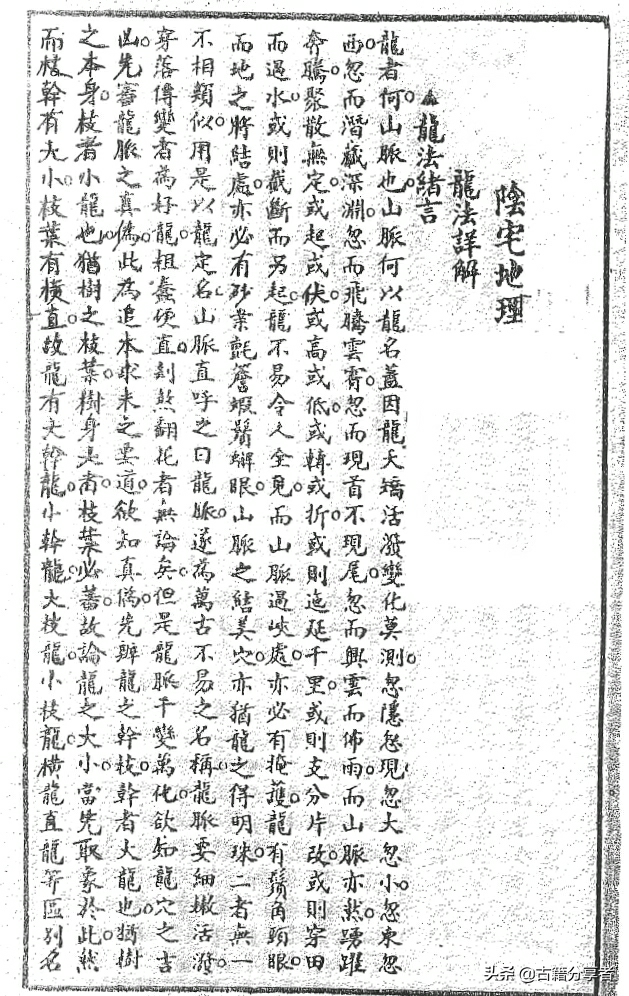 陰宅地理
龍法詳解
龍法緒言
龍者何山脈也山脈何以龍名蓋因龍夭矯活潑變化莫測忽隱忽現忽大忽小忽東忽
西忽而潛藏深淵忽而飛騰雲霄忽而現首不現尾忽而興雲而佈雨而山脈亦然踴躍
奔騰聚散無定或起或伏或高或低或轉或折或則迤延千里或則支分片改或則穿田
而過水或則截斷而另起龍不易令人全見而山脈過峽處亦必有掩護龍有鬚角頭眼
而地之將結處亦必有砂案氈簷蝦鬚蠏眼山脈之結美穴亦猶龍之得明珠二者無一
不相類似用是以龍定名山脈直呼之曰龍脈遂為萬古不易之名稱龍脈要細嫩活潑
穿落傳變者為好龍粗蠢硬直剝煞翻花者無論矣但是龍脈千變萬化欲知龍穴之吉
凶先審龍脈之真偽此為追本求末之要道欲知真偽先辨龍之幹枝幹者大龍也猶樹
之本身枝者小龍也猶樹之枝葉樹身大者枝葉必蕃故論龍之大小當先取象於此然
而枝幹有大小枝葉有橫直故龍有大幹龍小幹龍大枝龍小枝龍橫龍直龍等區別名
头条 @古籍分享者